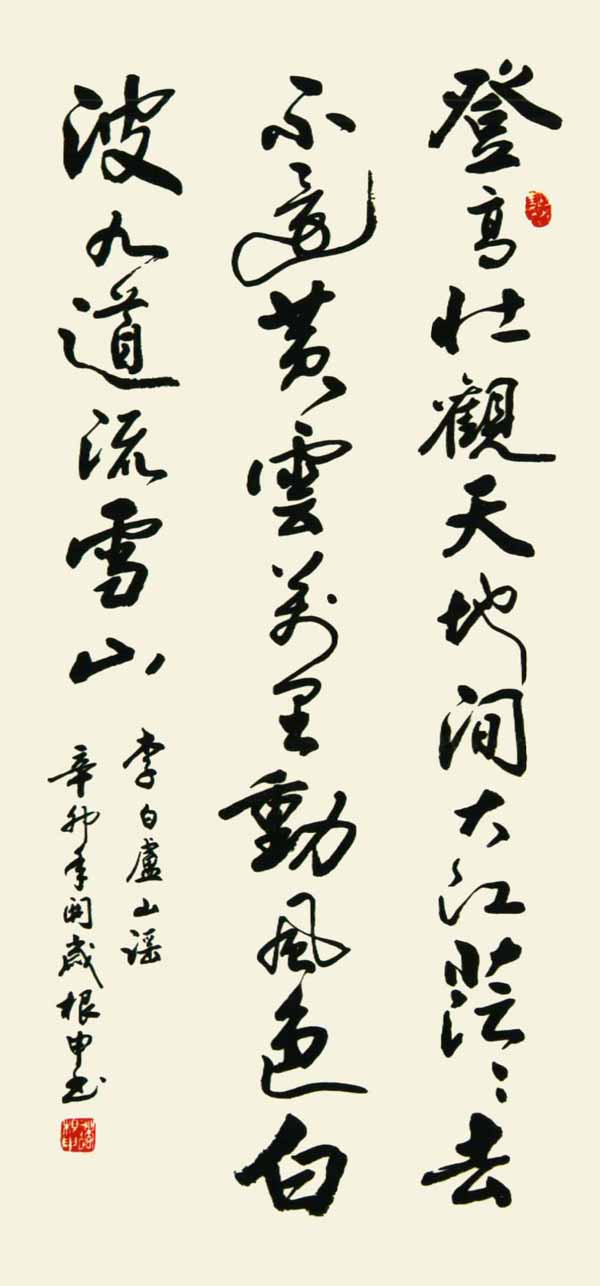 登高壮觀天地间大江茫々去
不還黄雲萬里動風色白
波九道流雪山
李白廬山谣
辛卯年開歲根申书